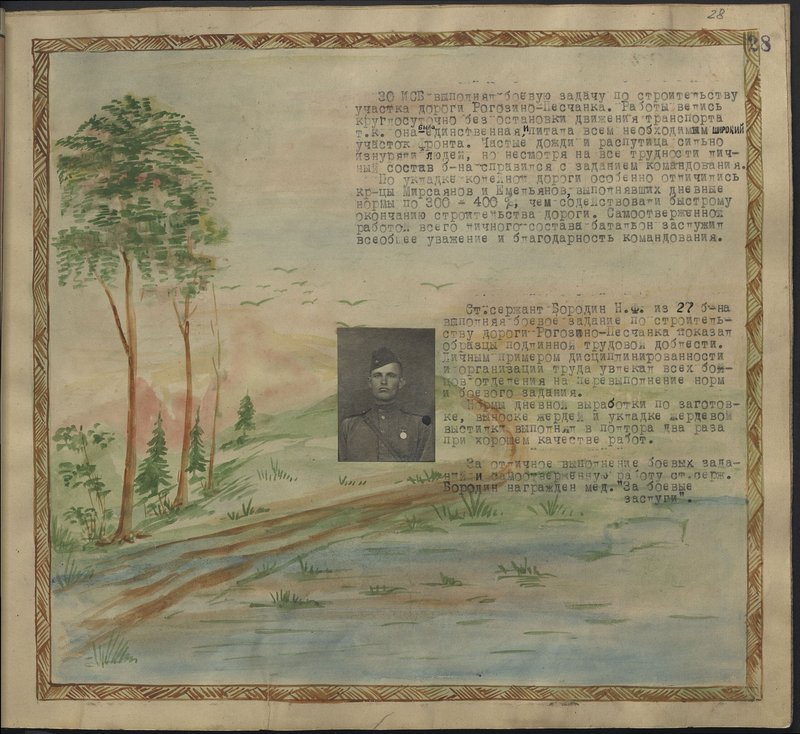 28
28
30 ИСБ выполнял боевую задачу по строительству
участка дороги Рогозино-Песчанка. Работы велись
круглосуточно без остановки движения транспорта
т.к. она была единственная и питала всем необходимым широкий
участок фронта. Частые дожди и распутица сильно
изнуряли людей, но несмотря на все трудности лич-
ный состав б-на справился с заданием командования.
По укладке колейной дороги особенно отличились
кр-цы Мирсаянов и Емельянов, выполнявших дневные
нормы по 300 - 400 %, чем содействовали быстрому
окончанию строительства дороги. Самоотверженной
работой всего личного состава батальон заслужил
всеобщее уважение и благодарность командования.
Ст.сержант Бородин Н.Ф. из 27 б-на
выполняя боевое задание по строитель-
ству дороги Рогозино-Песчанка показал
образцы подлинной трудовой доблести.
Личным примером дисциплинированности
и организации труда увлекал всех бой-
цов отделения на перевыполнение норм
и боевого задания.
Нормы дневной выработки по заготов-
ке, выноске жердей и укладке жердевой
выстилки выполнял в полтора два раза
при хорошем качестве работ.
За отличное выполнение боевых зада-
ний и самоотверженную работу ст.серж.
Бородин награжден мед. "За боевые
заслуги".